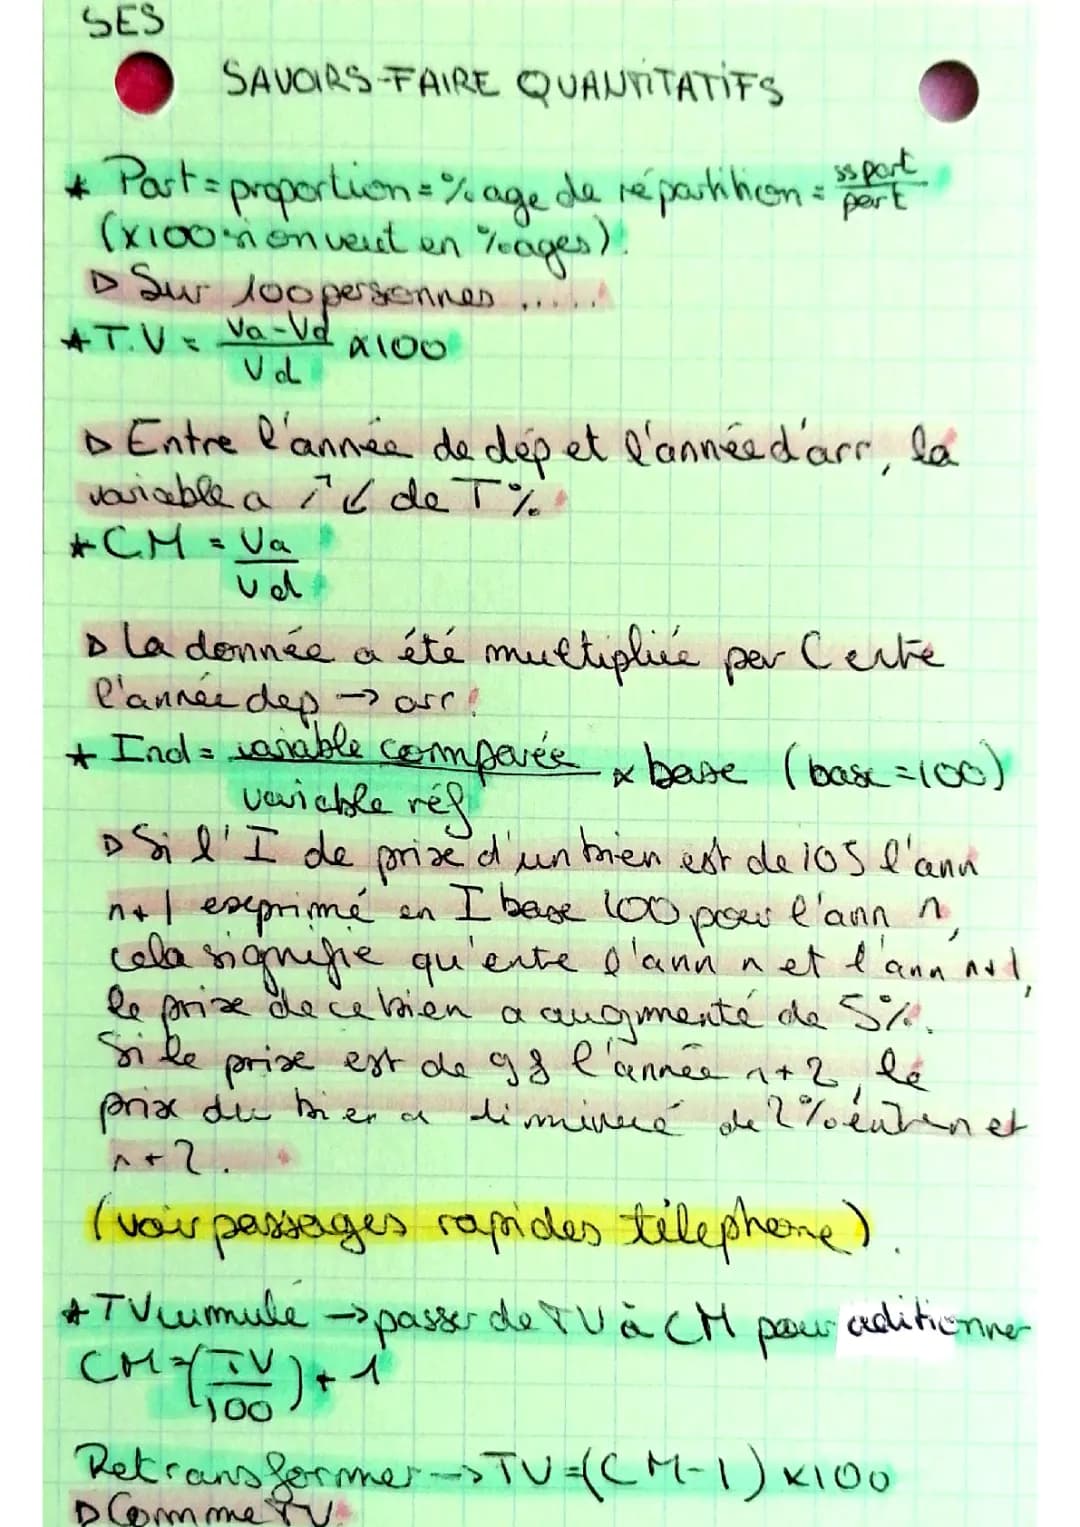 SES
SAVOIRS-FAIRE QUANTITATIFS
* Part = proportion = %age de répartition = ss part / part
(x100 si on veut en %ages).
▷ Sur 100 personnes .....
* T.V = Va-Vd / Vd x100
▷ Entre l'année de dép et l'année d'arr, la
variable a ↗↙ de T%.
* CM = Va / Vd
▷ la donnée a été multipliée par C entre
l'année dep → arr.
* Ind = variable comparée / variable réf x base (base = 100)
▷ Si l'I de prix d'un bien est de 105 l'ann
n+1 exprimé en I base 100 pour l'ann n,
cela signifie qu'entre l'ann n et l'ann n+1,
le prix de ce bien a augmenté de 5%.
Si le prix est de 98 l'année n+2, le
prix du bien a diminué de 2% entre n et
n+2.
(voir passages rapides téléphone).
* TV cumulé → passer de TV à CM pour aditionner
CM = (TV / 100) + 1
Retransformer → TV = (CM-1) x100
▷ Comme TV.